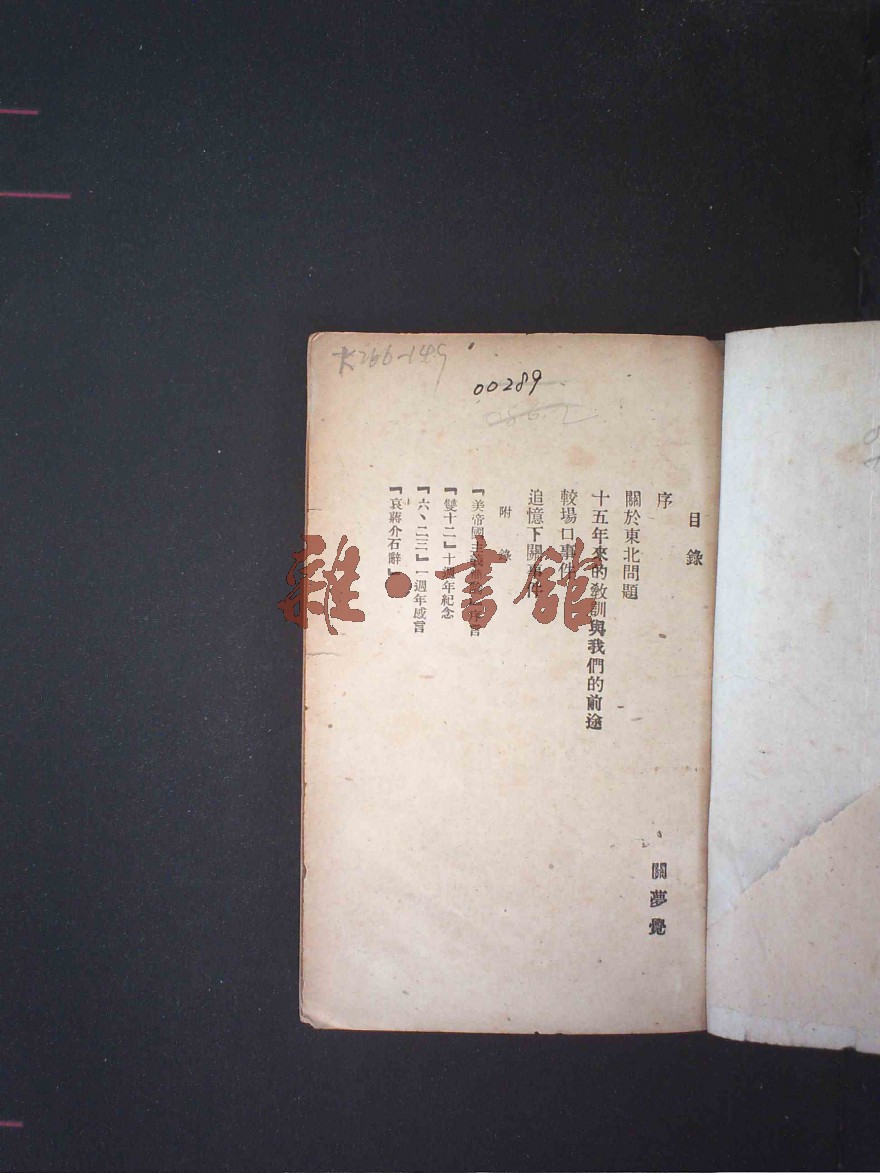 K266-149
00289
目錄
序 關夢覺
關於東北問題
十五年來的敎訓與我們的前途
較場口事件
追憶下關事件
附錄
『美帝國主義 序言
『雙十二』十週年紀念
『六、二三』一週年感言
『哀蔣介石辭』
雜·書館